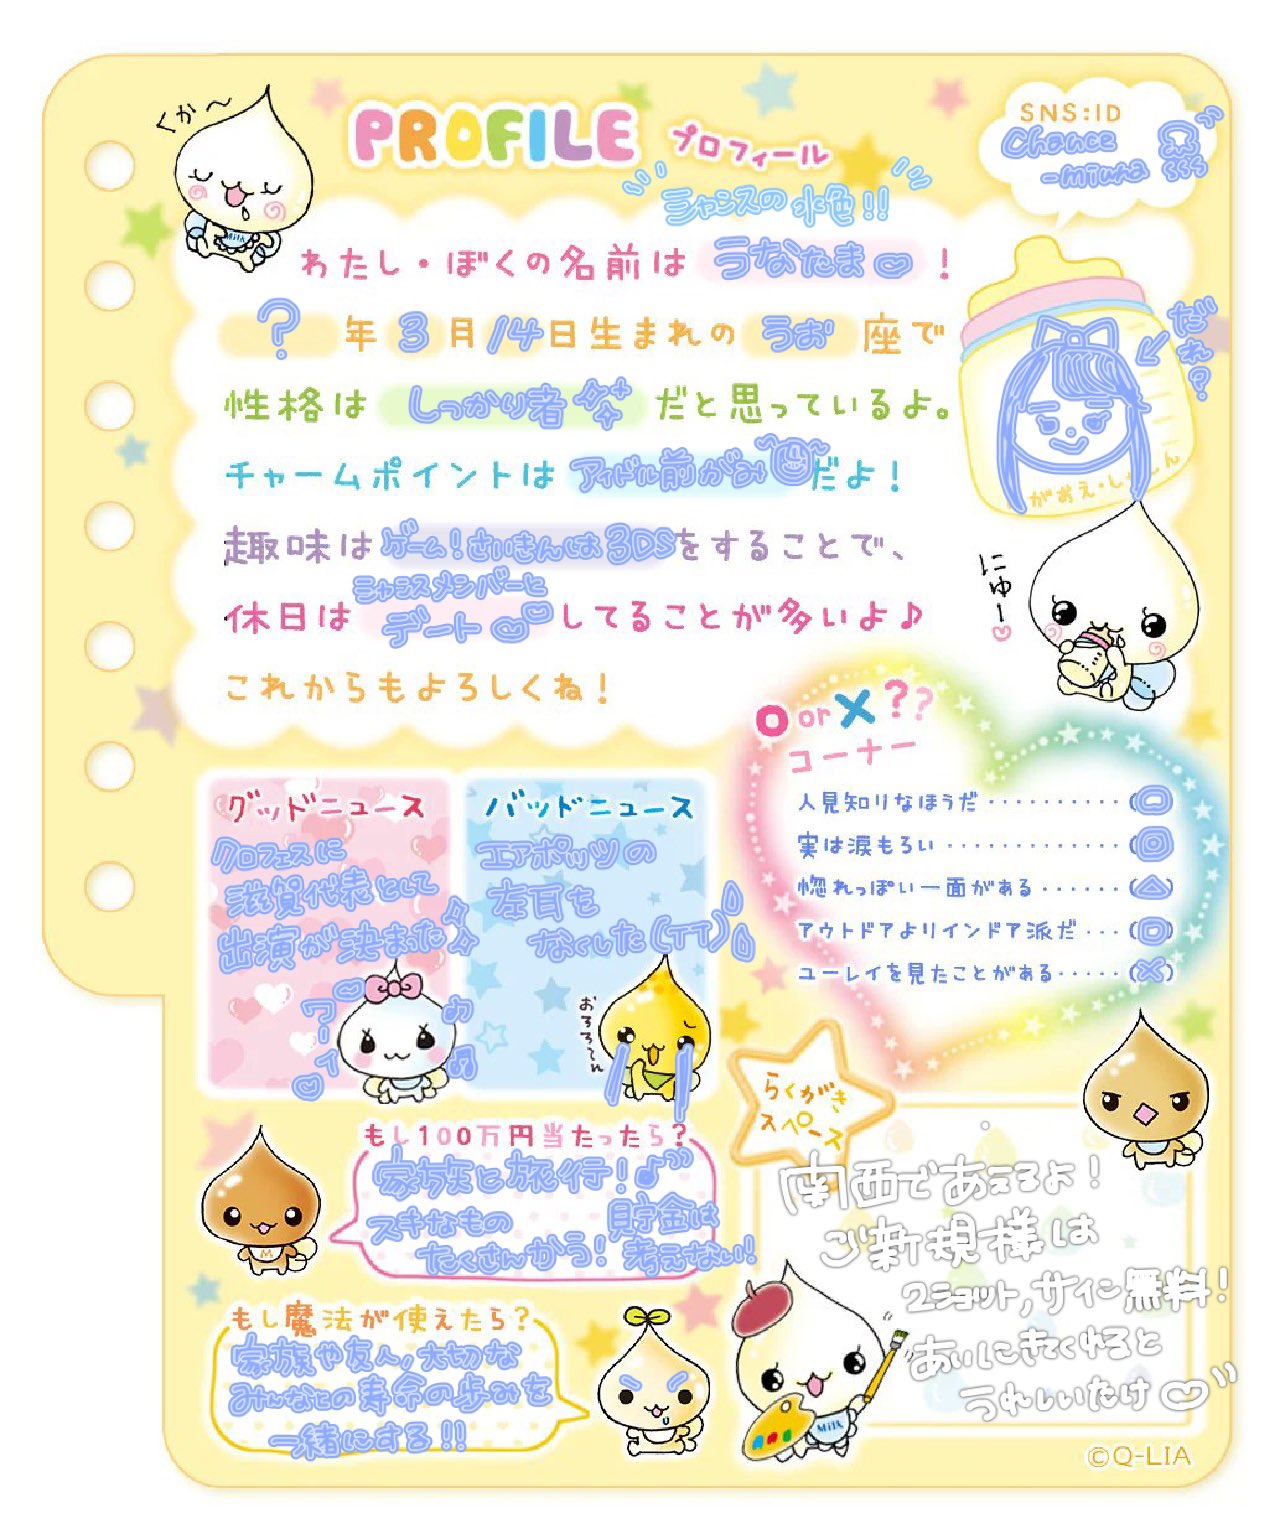 くか〜
PROFILE プロフィール
SNS:ID
Chance
-miuna
シャンスの水色!!
わたし・ぼくの名前はうなたま♡!
?年3月14日生まれのうお座で
性格はしっかり者だと思っているよ。
チャームポイントはアイドル前がみだよ!
趣味はゲーム!さいきんは3DSをすることで、
シャンスメンバーと
休日はデート♡してることが多いよ♪
これからもよろしくね!
だれ?
がおえ・し
にゅー♡
O or X??
コーナー
人見知りなほうだ··········(○)
実は涙もろい·············(◎)
惚れっぽい一面がある······(△)
アウトドアよりインドア派だ···(○)
ユーレイを見たことがある·····(×)
グッドニュース
クロフェスに
滋賀代表として
出演が決まった
ワーイ♡
バッドニュース
エアポッツの
左耳を
なくした(TT)
おろろ〜ん
らくがき
スペース
もし100万円当たったら?
家族と旅行!♪
スキなもの
たくさんかう!
貯金は
考えない!
M
もし魔法が使えたら?
家族や友人、大切な
みんなとの寿命の歩みを
一緒にする!!
関西であえるよ!
ご新規様は
2ショット,サイン無料!
あいにきてくれると
うれしいたけ♡
Milk
Milk
©Q-LIA